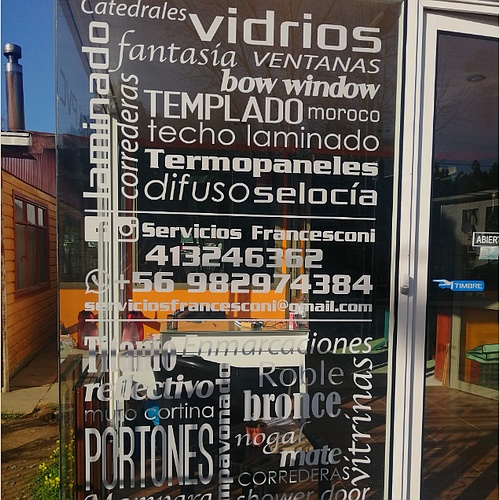 Catedrales
vidrios
fantasía VENTANAS
laminado
correderas
bow window
TEMPLADO moroco
techo laminado
Termopaneles
difuso selocía
Servicios Francesconi
413246362
+56 982974384
serviciosfrancesconi@gmail.com
Enmarcaciones
reflectivo
Roble
muro cortina
bronce
vitrinas
PORTONES
pavonado
nogal
mate
CORREDERAS
Mampara
shower door
ABIER
TIMBRE